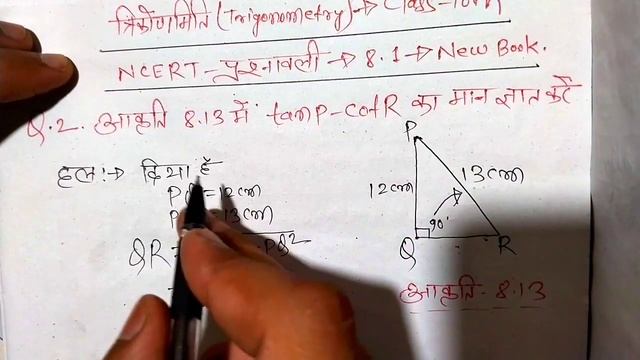 त्रिकोणमिति (Trigonometry) → Class-10th
NCERT - प्रश्नावली → 8.1 → New Book.
Q.2. आकृति 8.13 में tanP-cotR का मान ज्ञात करें
हल:→ दिया है
=12cm
=13cm
QR = PQ²
P
12cm
13cm
90°
Q
R
आकृति - 8.13